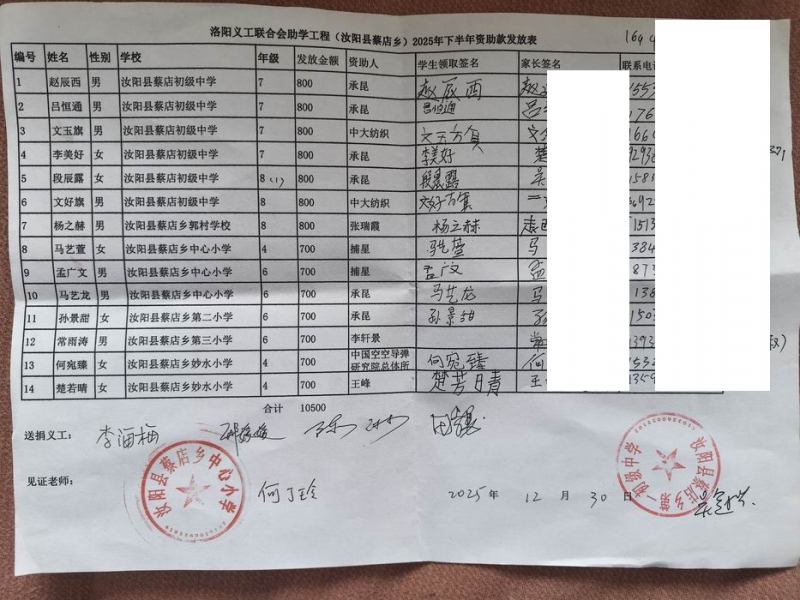 洛阳义工联合会助学工程（汝阳县蔡店乡）2025年下半年资助款发放表
编号 姓名 性别 学校 年级 发放金额 资助人 学生领取签名 家长签名 联系电话
1 赵辰西 男 汝阳县蔡店初级中学 7 800 承昆 赵辰西 赵
2 吕恒通 男 汝阳县蔡店初级中学 7 800 承昆 吕恒通 吕
3 文玉旗 男 汝阳县蔡店初级中学 7 800 中大纺织 文玉旗 文
4 李美好 女 汝阳县蔡店初级中学 7 800 承昆 李美好
5 段辰露 女 汝阳县蔡店初级中学 8（1） 800 承昆 段辰露
6 文好旗 男 汝阳县蔡店初级中学 8 800 中大纺织 文好旗
7 杨之赫 男 汝阳县蔡店乡郭村学校 8 800 张瑞霞 杨之赫
8 马艺萱 女 汝阳县蔡店乡中心小学 4 700 捕星 马艺萱 马
9 孟广文 男 汝阳县蔡店乡中心小学 6 700 捕星 孟广文 孟
10 马艺龙 男 汝阳县蔡店乡中心小学 6 700 承昆 马艺龙 马
11 孙景甜 女 汝阳县蔡店乡第二小学 6 700 承昆 孙景甜
12 常雨涛 男 汝阳县蔡店乡第三小学 6 700 李轩景 常
13 何宛臻 女 汝阳县蔡店乡妙水小学 4 700 中国空空导弹研究院总体所 何宛臻 何
14 楚若晴 女 汝阳县蔡店乡妙水小学 4 700 王峰 楚若晴 王
合计 10500
送捐义工： 李海梅
见证老师： 何丁玲 2025年12月30日
汝阳县蔡店乡中心小学
汝阳县蔡店乡第一初级中学